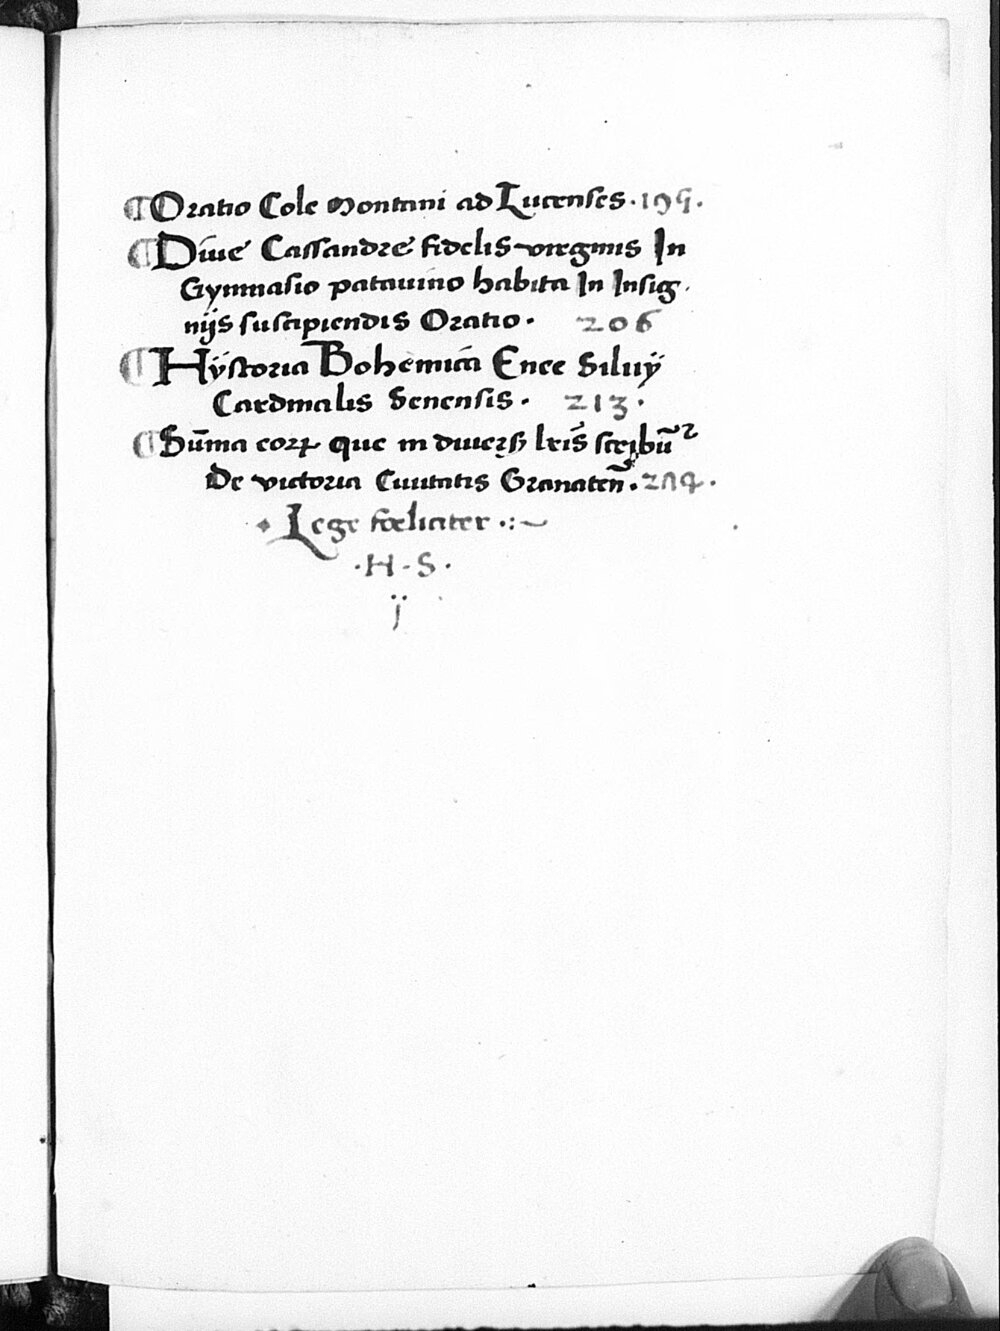 ¶ Oratio Cole Montani ad Lucenses · 195 ·
¶ Diue Cassandre fidelis virginis In
Gymnasio patauino habita In Insig
nijs suscipiendis Oratio · 206
¶ Hÿstoria Bohemica Enee Siluÿ
Cardinalis Senensis · 213 ·
¶ Sūma eoꝝ que in diuersꝭ lrīs scribūꝛ
De victoria Ciuitatis Granateñ · 284 ·
Lege foeliciter · : ~
· H · S ·
ÿ